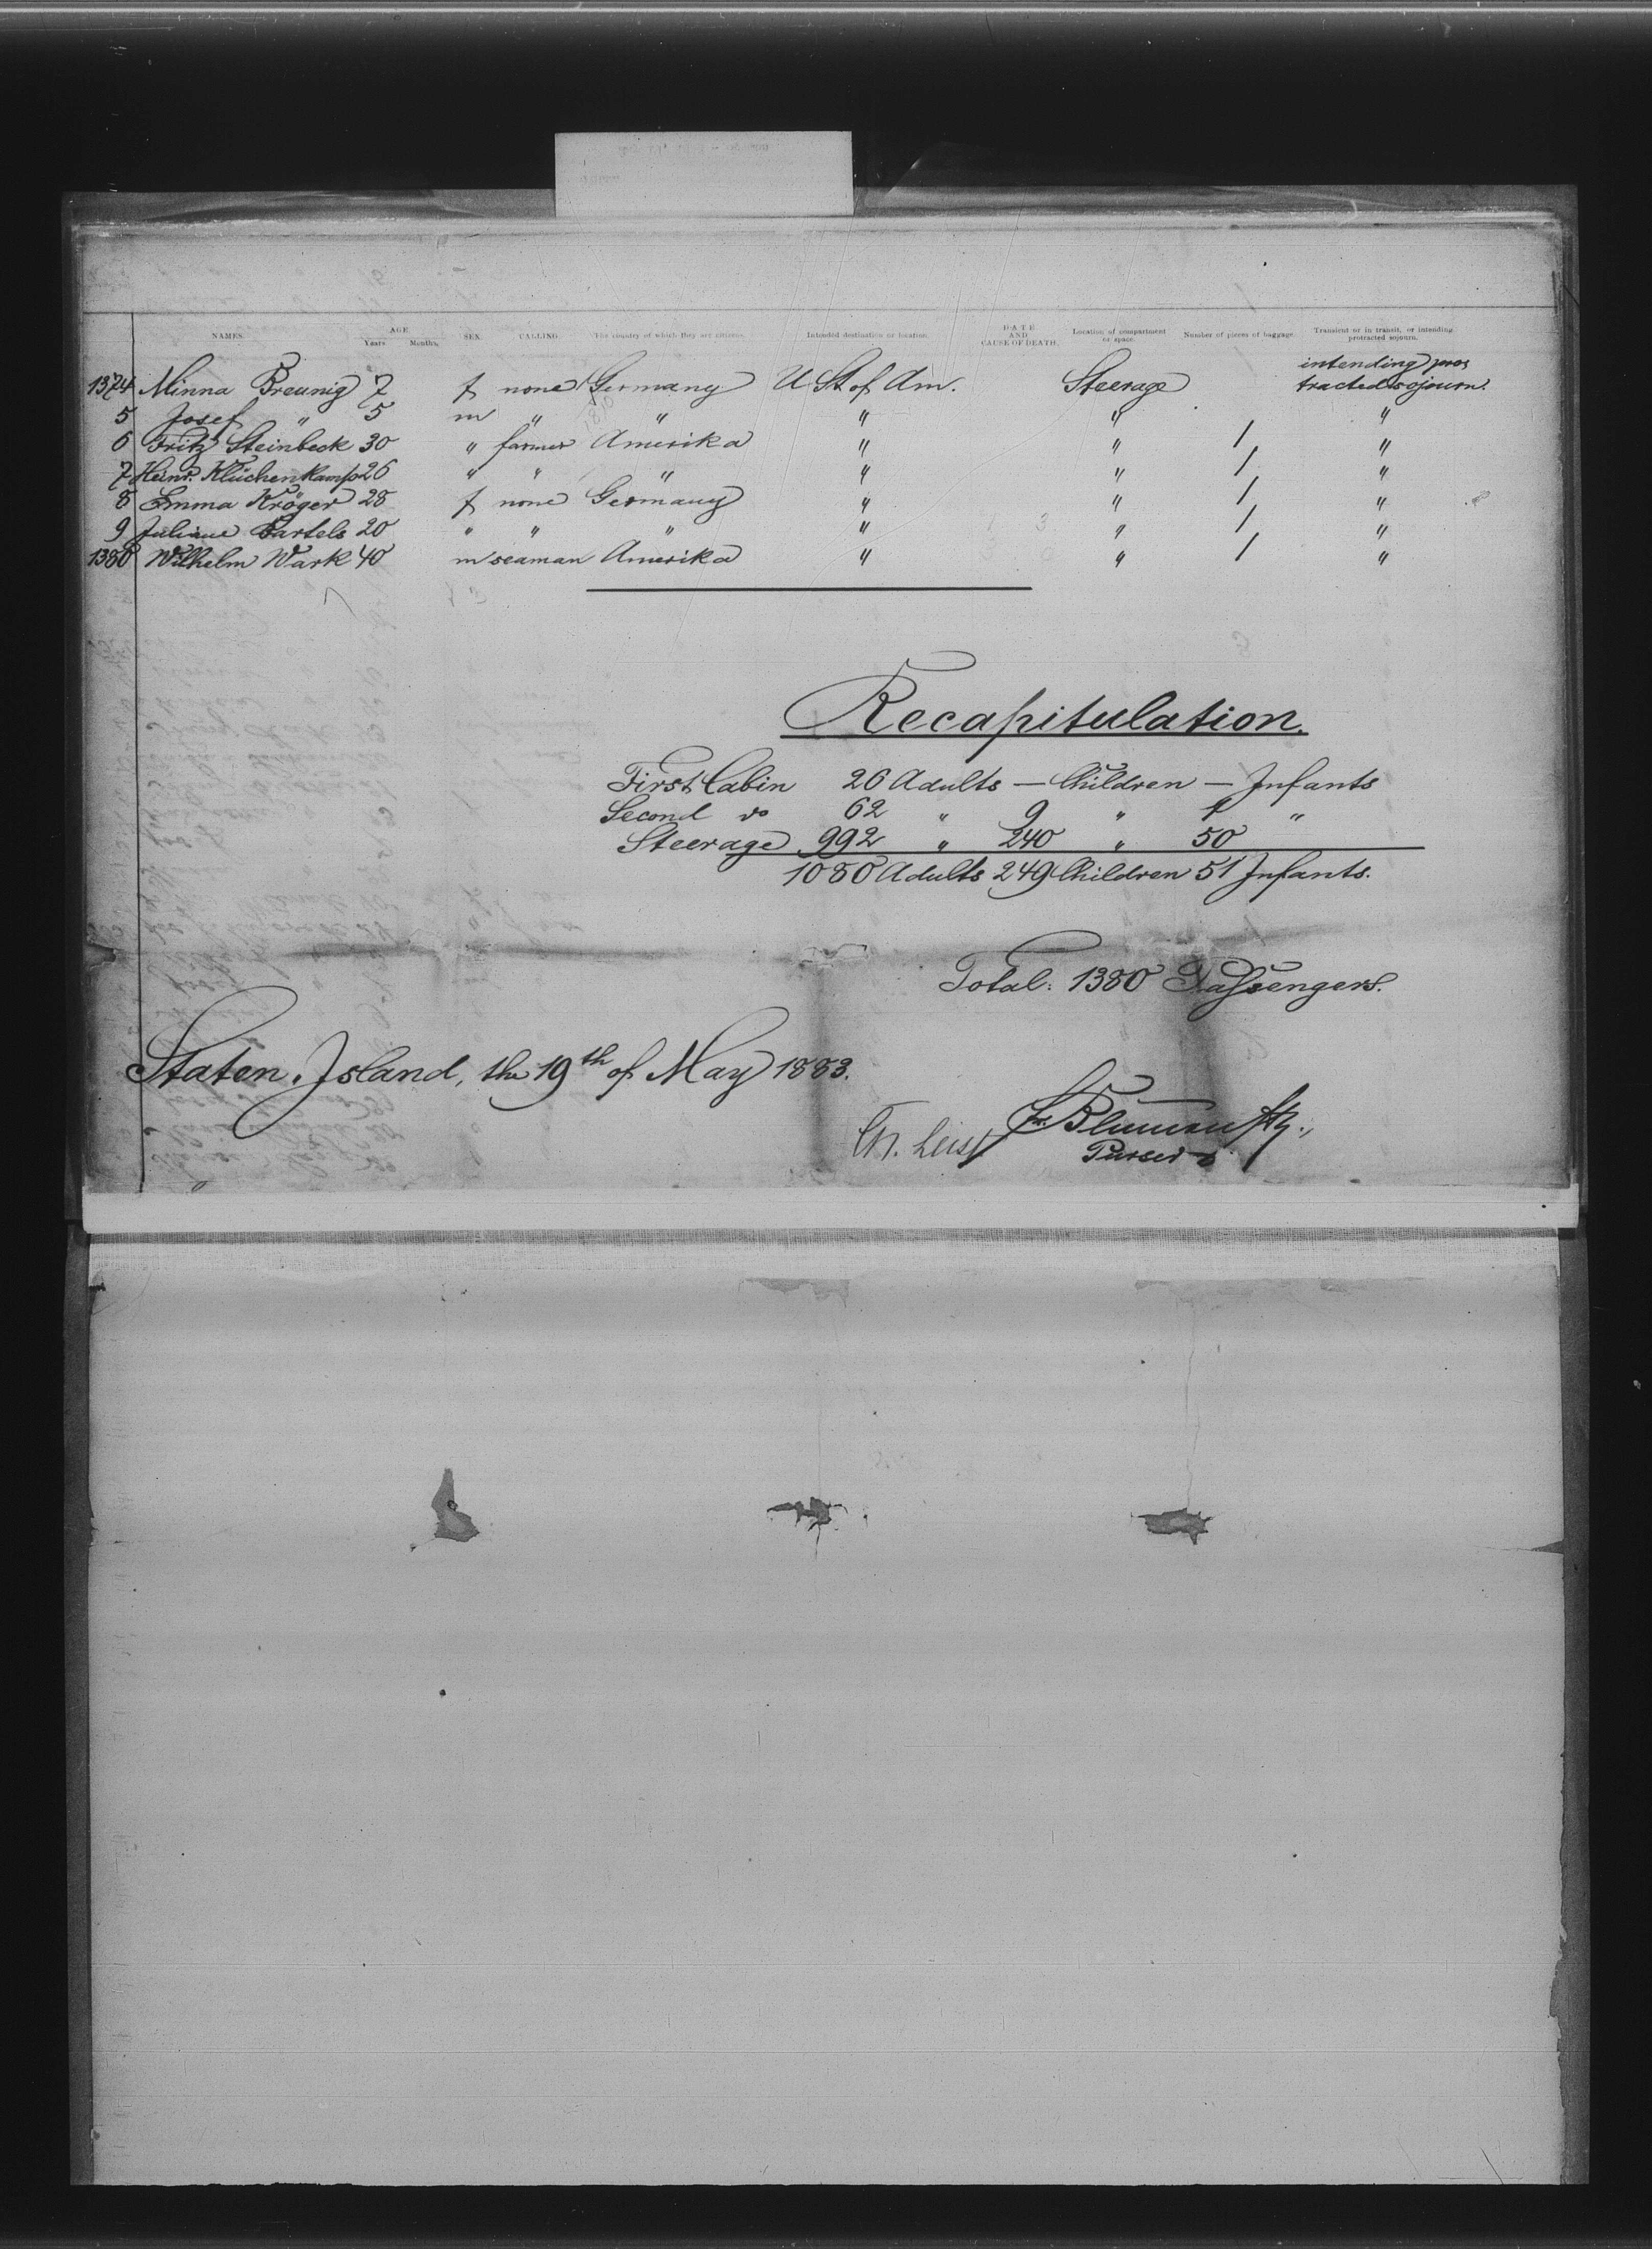 NAMES. AGE Years Months. SEX. CALLING. The country of which they are citizens. Intended destination or location. DATE AND CAUSE OF DEATH. Location of compartment or space. Number of pieces of baggage. Transient or in transit, or intending protracted sojourn.
1374 Minna Breunig 7 f none Germany U St of Am. Steerage intending pro= tracted sojourn.
5 Josef " 5 m " " " " "
6 Fritz Steinbeck 30 " farmer Amerika " " 1 "
7 Heinr. Klüchenkamp 26 " " " " " 1 "
8 Emma Kröger 28 f none Germany " " 1 "
9 Juliane Bartels 20 " " " " " 1 "
1380 Wilhelm Wark 40 m seaman Amerika " " 1 "
Recapitulation.
First Cabin 26 Adults — Children — Infants
Second do 62 " 9 " 1 "
Steerage 992 " 240 " 50
1080 Adults 249 Children 51 Infants.
Total: 1380 Passengers.
Staten Island, the 19th of May 1883.
Ch. Leist
Purser